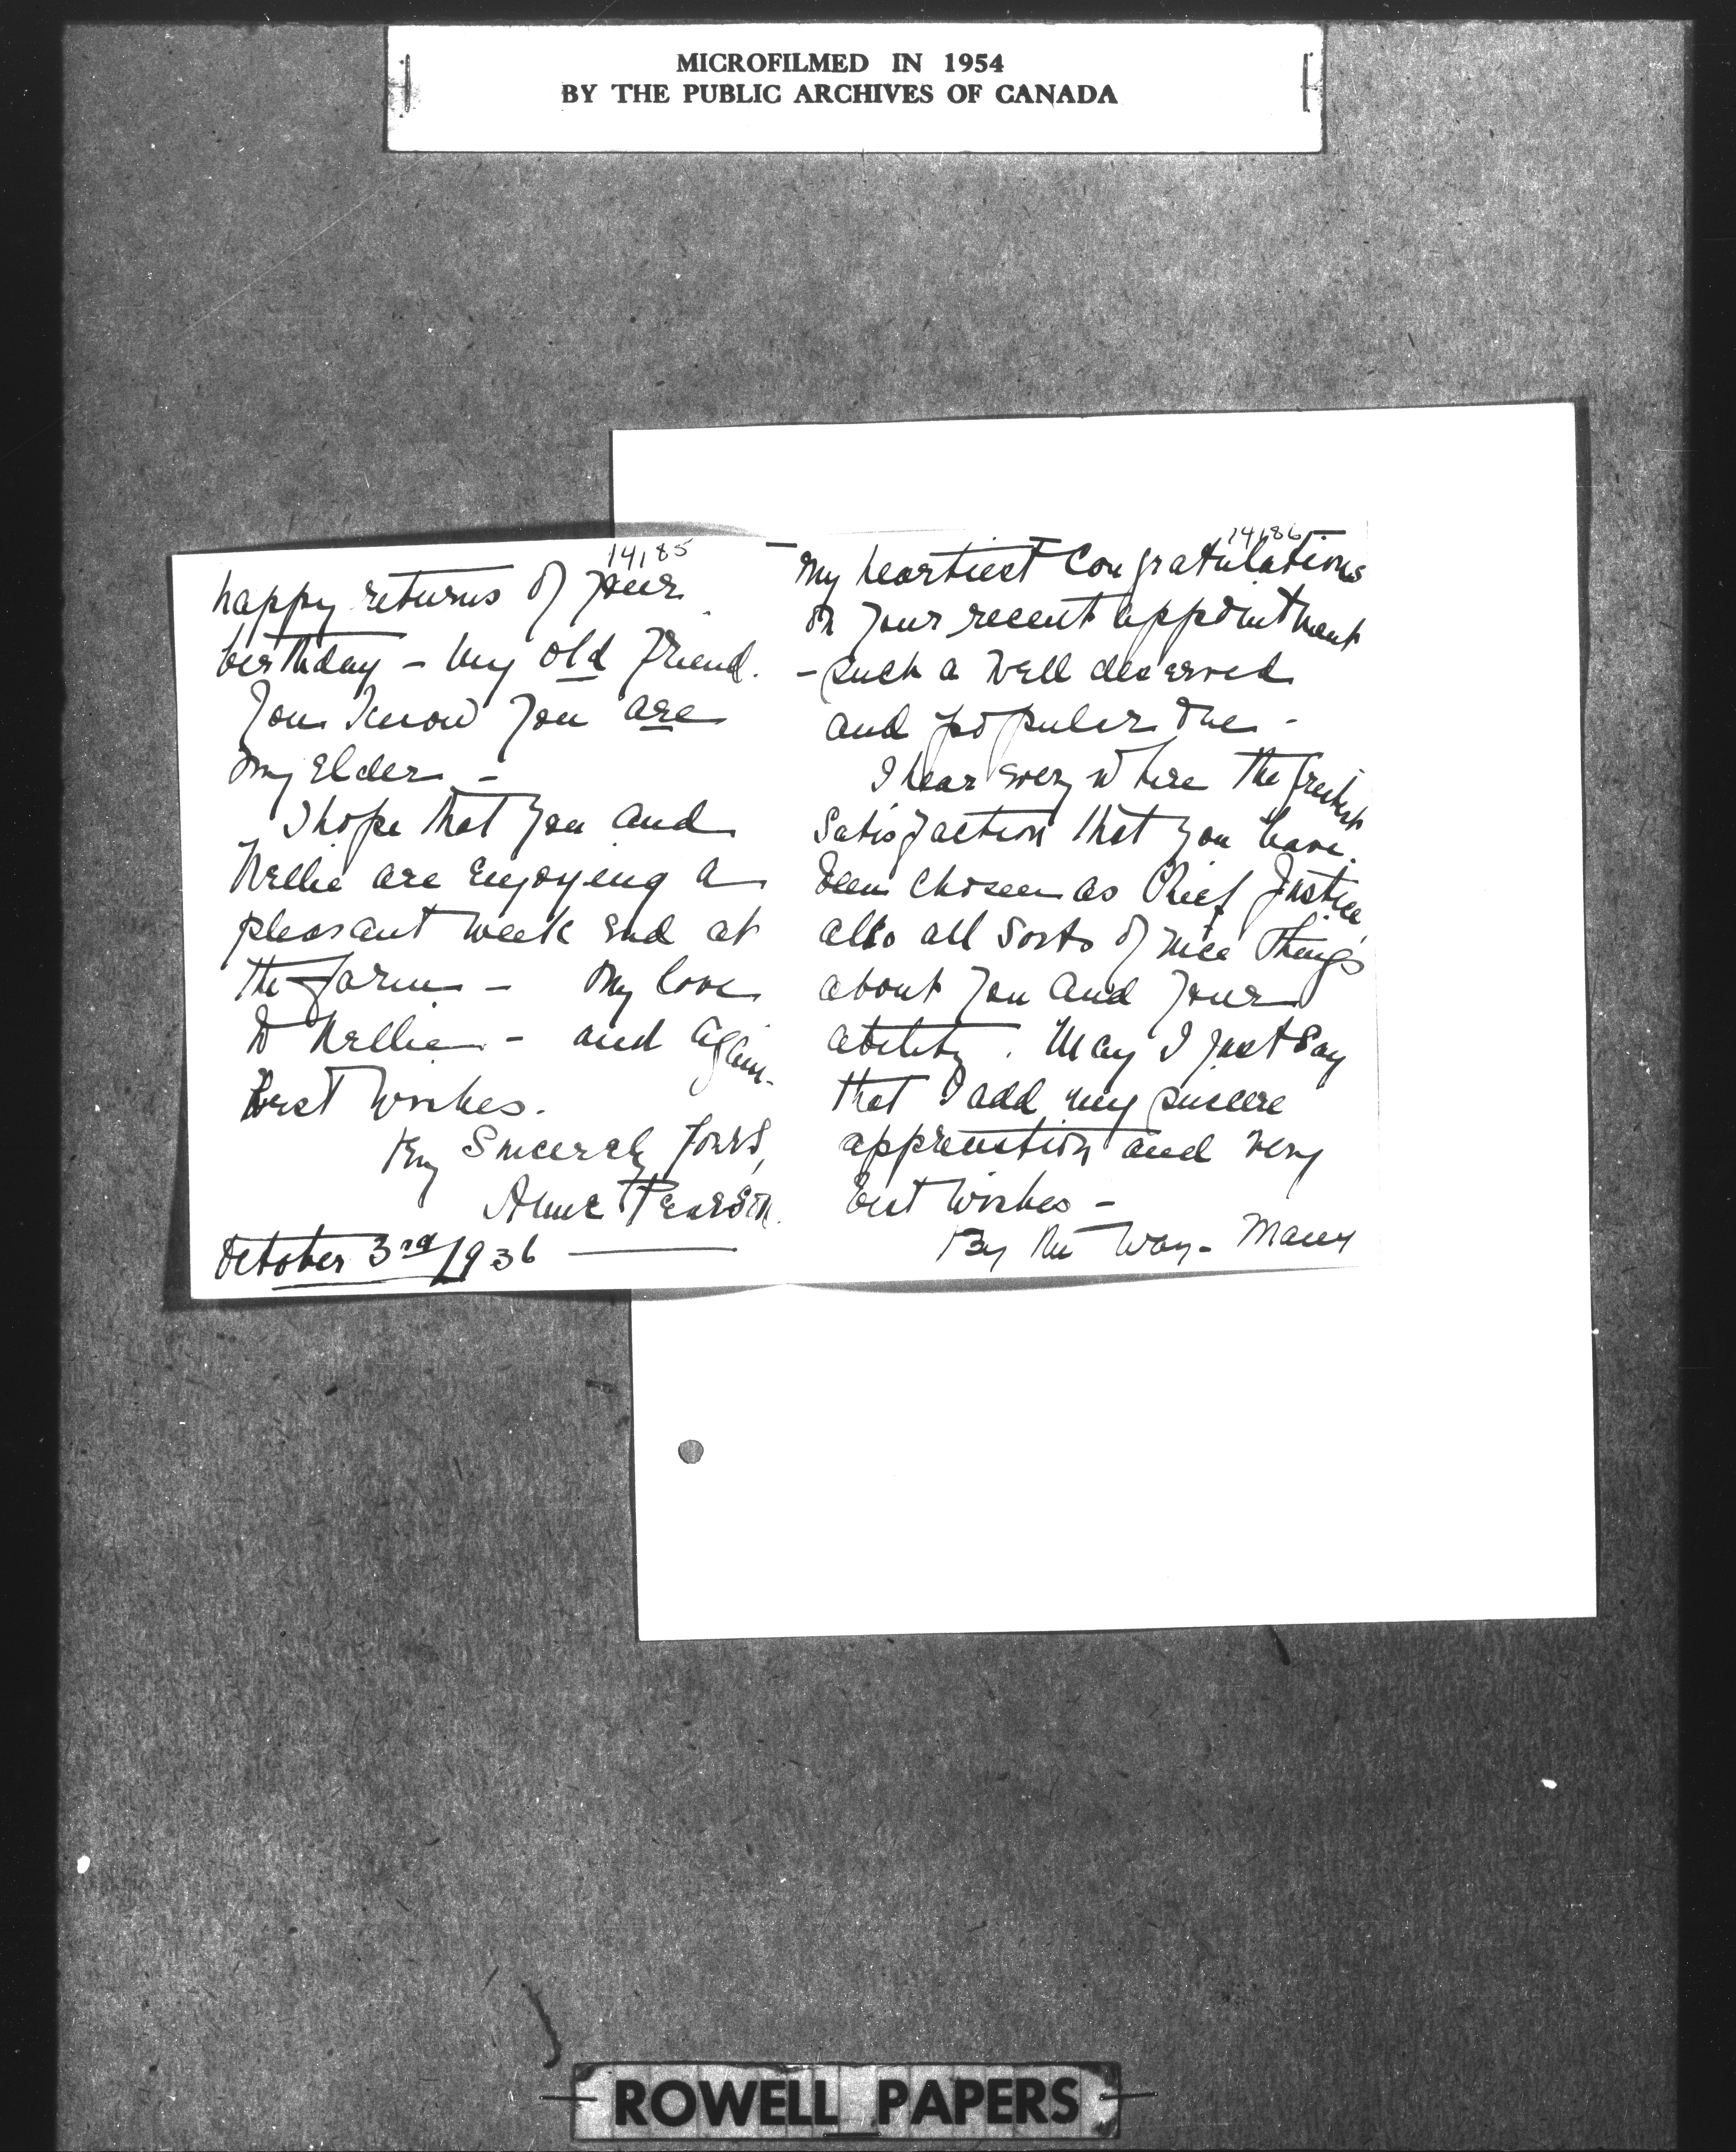 MICROFILMED IN 1954
BY THE PUBLIC ARCHIVES OF CANADA
14185
happy returns of your
birthday - my old friend.
You know you are
my Elder -
I hope that you and
Nellie are enjoying a
pleasant week end at
the farm - My love
to Nellie - and again
best wishes.
Very Sincerely Yours,
Pearson.
October 3rd/1936
14186
- My heartiest Congratulations
on your recent appointment
- such a well deserved
and popular one -
I hear every where the greatest
satisfaction that you have
been chosen as Chief Justice,
also all sorts of nice things
about you and your
ability. May I just say
that I add my sincere
appreciation and very
best wishes -
By the way - Many
ROWELL PAPERS